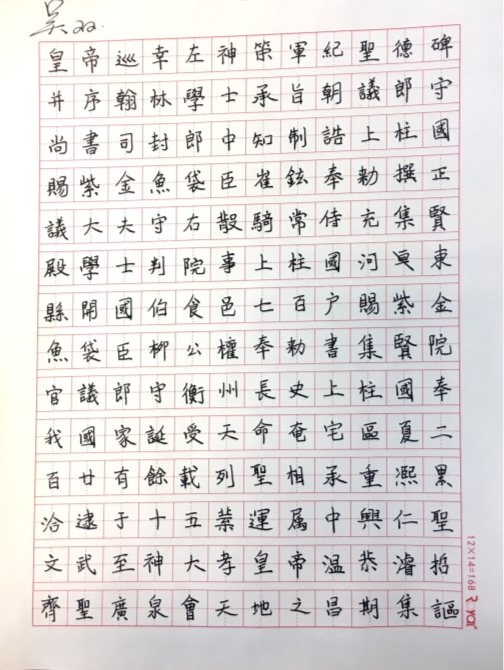 吴
皇帝巡幸左神策軍紀聖德碑
并序翰林學士承旨朝議郎守
尚書司封郎中知制誥上柱國
賜紫金魚袋臣崔鉉奉勅撰正
議大夫守右散騎常侍充集賢
殿學士判院事上柱國河東
縣開國伯食邑七百户賜紫金
魚袋臣柳公權奉勅書集賢院
官議郎守衡州長史上柱國奉
我國家誕受天命奄宅區夏二
百廿有餘載列聖相承重熙累
洽逮于十五葉運属中興仁聖
文武至神大孝皇帝温恭濬哲
齊聖廣泉會天地之昌期集謳
12×14=168